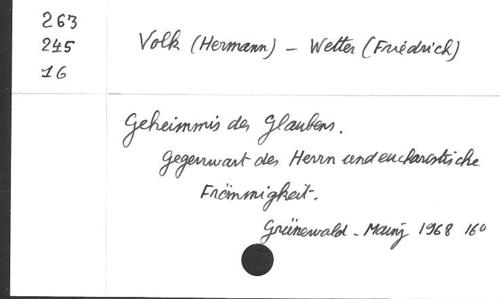 263
245
16
Volk (Hermann) - Wetter (Friedrich)
Geheimnis des Glaubens.
Gegenwart des Herrn und eucharistische
Frömmigkeit.
Grünewald - Mainz 1968 160